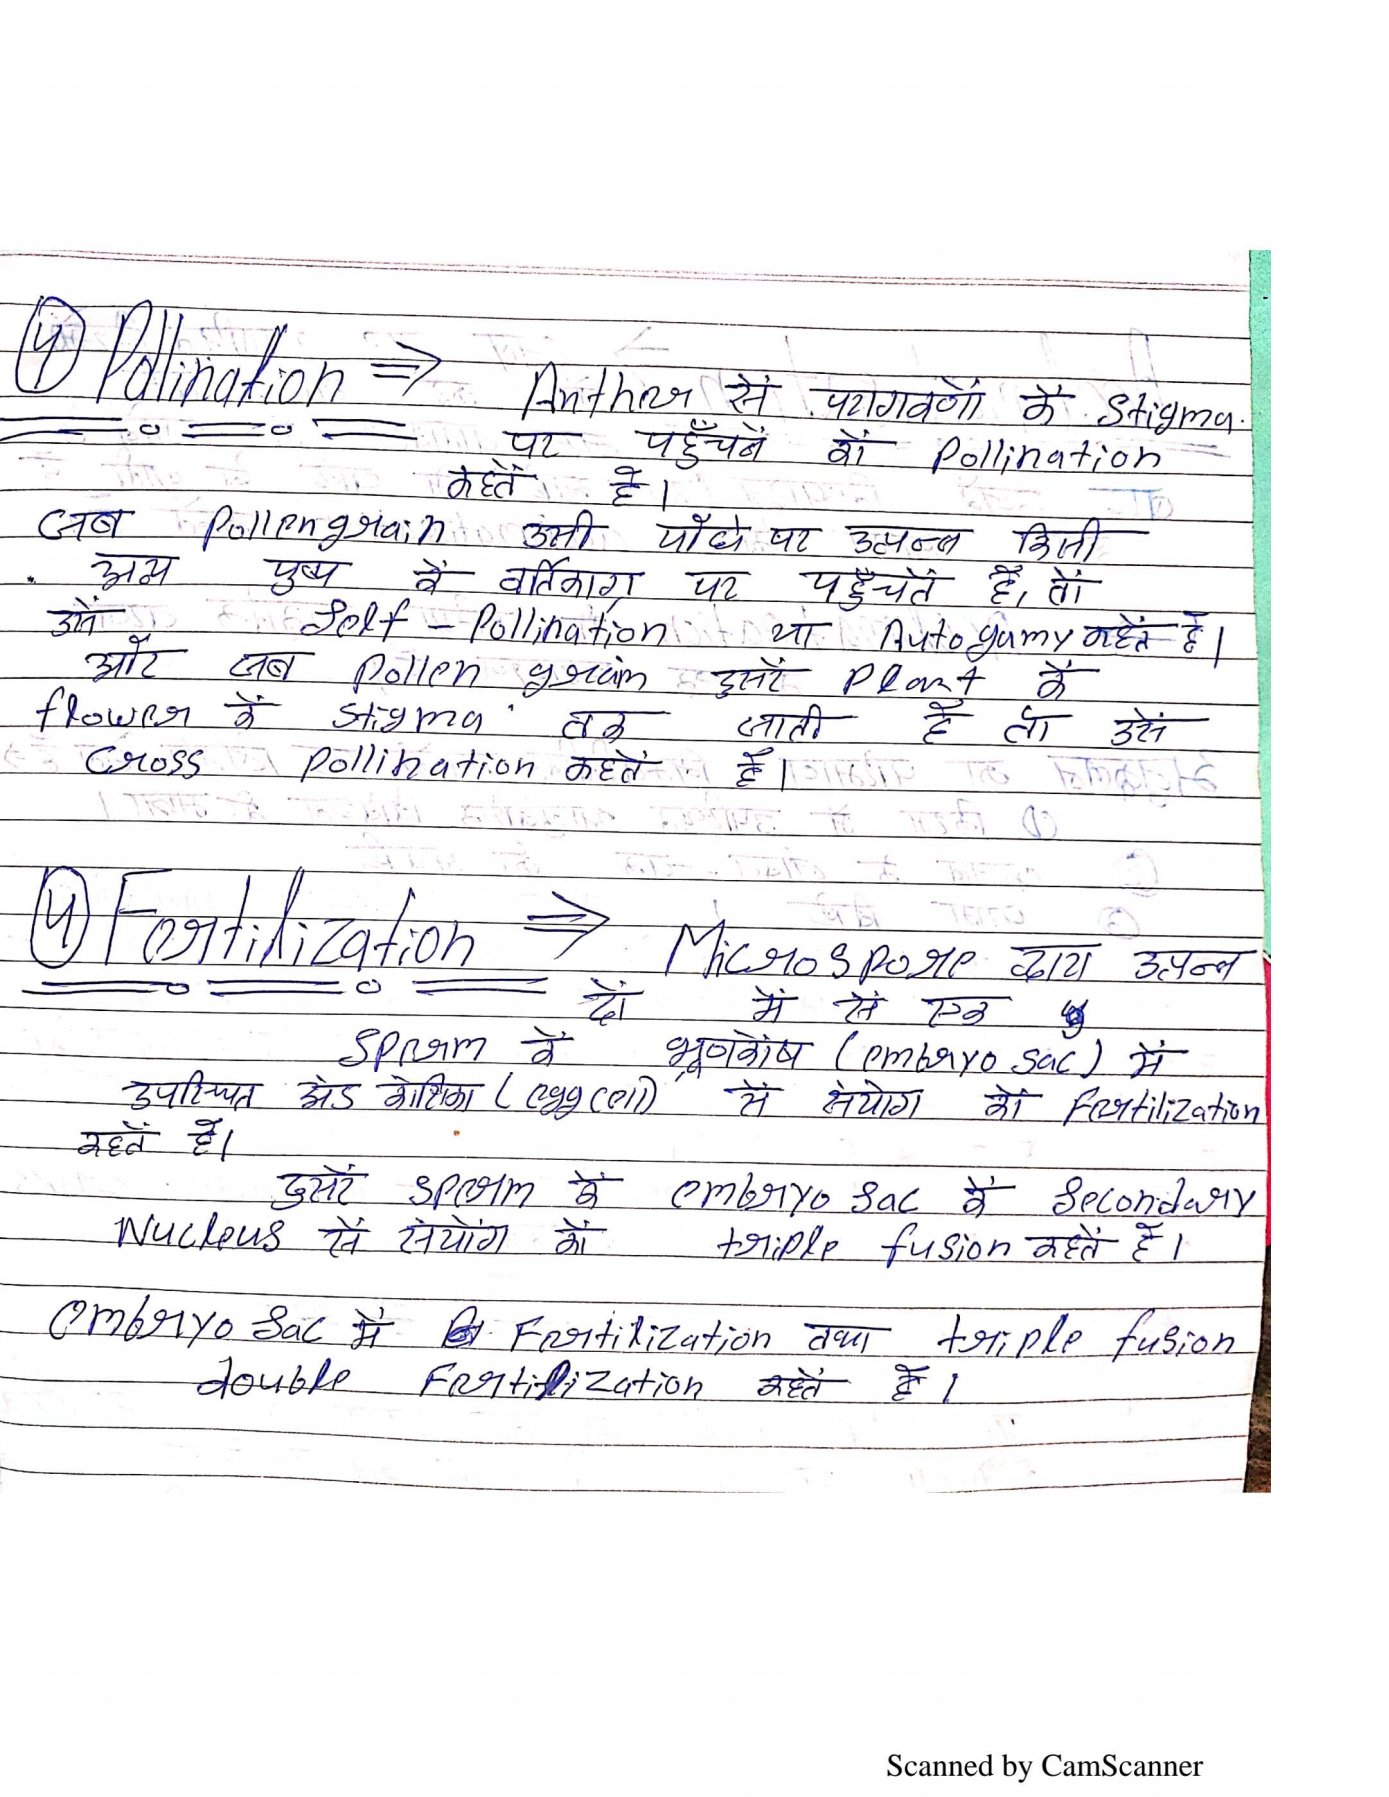 ④ Pollination ⇒ Anther सें परागकणों के Stigma.
पर पहुँचनें कों Pollination
कहतें है।
जब Pollengrain उसी पौधे पर उत्पन्न किसी
अन्य पुष्प कें वर्तिकाग्र पर पहुँचतें हैं, तों
उसें Self - Pollination या Autogamy कहतें है।
और जब Pollen grain दुसरें Plant कें
flower कें stigma तक जाती हैं तो उसें
Cross Pollination कहतें हैं।
⑤ Fertilization ⇒ Microspore द्वारा उत्पन्न
दों में सें एक
Sperm कें भ्रूणकोष (embryo sac) में
उपस्थित अंड कोशिका (egg cell) सें संयोग कों Fertilization
कहतें हैं।
दुसरें sperm कें embryo sac कें Secondary
Nucleus सें संयोंग कों triple fusion कहतें हैं।
embryo sac में Fertilization तथा triple fusion
double Fertilization कहतें हैं।
Scanned by CamScanner